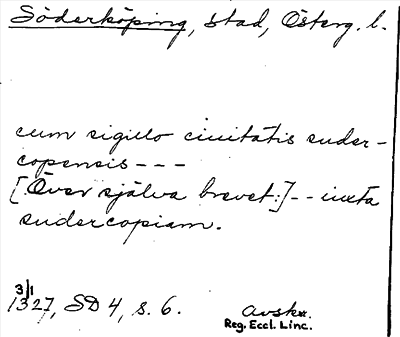 Söderköping, stad, Österg. l.
cum sigillo ciuitatis suder-
copensis - - -
[Över själva brevet:] - - iuxta
sudercopiam.
3/1
1327, SD 4, s. 6.
Avskr.
Reg. Eccl. Linc.